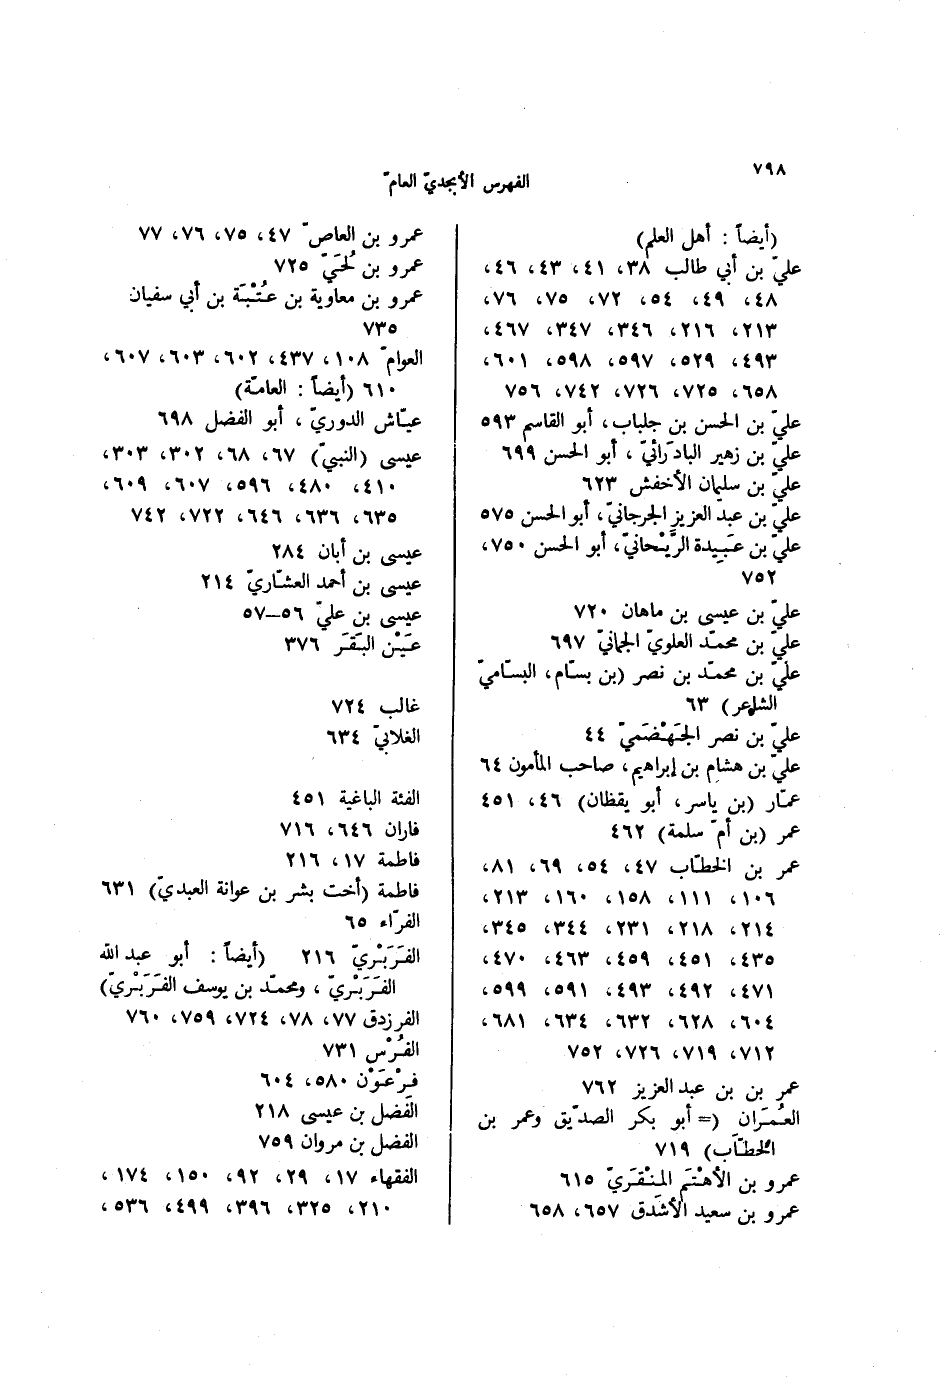 ٧٩٨
الفهرس الأبجديّ العامّ
(أيضاً : أهل العلم)
عليّ بن أبي طالب ٣٨، ٤١، ٤٣، ٤٦،
٤٨، ٤٩، ٥٤، ٧٢، ٧٥، ٧٦،
٢١٣، ٢١٦، ٣٤٦، ٣٤٧، ٤٦٧،
٤٩٣، ٥٢٩، ٥٩٧، ٥٩٨، ٦٠١،
٦٥٨، ٧٢٥، ٧٢٦، ٧٤٢، ٧٥٦
عليّ بن الحسن بن جلباب، أبو القاسم ٥٩٣
عليّ بن زهير البادَرائيّ ، أبو الحسن ٦٩٩
عليّ بن سليمان الأخفش ٦٢٣
عليّ بن عبد العزيز الجرجانيّ، أبو الحسن ٥٧٥
عليّ بن عَبيدة الرَّيْحانيّ، أبو الحسن ٧٥٠،
٧٥٢
عليّ بن عيسى بن ماهان ٧٢٠
عليّ بن محمّد العلويّ الجمانيّ ٦٩٧
عليّ بن محمّد بن نصر (بن بسّام، البسّاميّ
الشاعر) ٦٣
عليّ بن نصر الجَهْضَميّ ٤٤
عليّ بن هشام بن إبراهيم، صاحب المأمون ٦٤
عمّار (بن ياسر، أبو يقظان) ٤٦، ٤٥١
عمر (بن أمّ سلمة) ٤٦٢
عمر بن الخطّاب ٤٧، ٥٤، ٦٩، ٨١،
١٠٦، ١١١، ١٥٨، ١٦٠، ٢١٣،
٢١٤، ٢١٨، ٢٣١، ٣٤٤، ٣٤٥،
٤٣٥، ٤٥١، ٤٥٩، ٤٦٣، ٤٧٠،
٤٧١، ٤٩٢، ٤٩٣، ٥٩١، ٥٩٩،
٦٠٤، ٦٢٨، ٦٣٢، ٦٣٤، ٦٨١،
٧١٢، ٧١٩، ٧٢٦، ٧٥٢
عمر بن بن عبد العزيز ٧٦٢
العُمَران (= أبو بكر الصدّيق وعمر بن
الخطّاب) ٧١٩
عمرو بن الأهْتَم المِنْقَريّ ٦١٥
عمرو بن سعيد الأشْدَق ٦٥٧، ٦٥٨
عمرو بن العاصّ ٤٧، ٧٥، ٧٦، ٧٧
عمرو بن لُحَيّ ٧٢٥
عمرو بن معاوية بن عُتْبَة بن أبي سفيان
٧٣٥
العوامّ ١٠٨، ٤٣٧، ٦٠٢، ٦٠٣، ٦٠٧،
٦١٠ (أيضاً : العامّة)
عيّاش الدوريّ ، أبو الفضل ٦٩٨
عيسى (النبيّ) ٦٧، ٦٨، ٣٠٢، ٣٠٣،
٤١٠، ٤٨٠، ٥٩٦، ٦٠٧، ٦٠٩،
٦٣٥، ٦٣٦، ٦٤٦، ٧٢٢، ٧٤٢
عيسى بن أبان ٢٨٤
عيسى بن أحمد العشّاريّ ٢١٤
عيسى بن عليّ ٥٦–٥٧
عَيْن البَقَر ٣٧٦
غالب ٧٢٤
الغلابيّ ٦٣٤
الفئة الباغية ٤٥١
فاران ٦٤٦، ٧١٦
فاطمة ١٧، ٢١٦
فاطمة (أخت بشر بن عوانة العبديّ) ٦٣١
الفرّاء ٦٥
الفَرَبْريّ ٢١٦ (أيضاً : أبو عبد الله
الفَرَبْريّ ، ومحمّد بن يوسف الفَرَبْريّ)
الفرزدق ٧٧، ٧٨، ٧٢٤، ٧٥٩، ٧٦٠
الفُرْس ٧٣١
فِرْعَوْن ٥٨٠، ٦٠٤
الفَضل بن عيسى ٢١٨
الفضل بن مروان ٧٥٩
الفقهاء ١٧، ٢٩، ٩٢، ١٥٠، ١٧٤،
٢١٠، ٣٢٥، ٣٩٦، ٤٩٩، ٥٣٦،